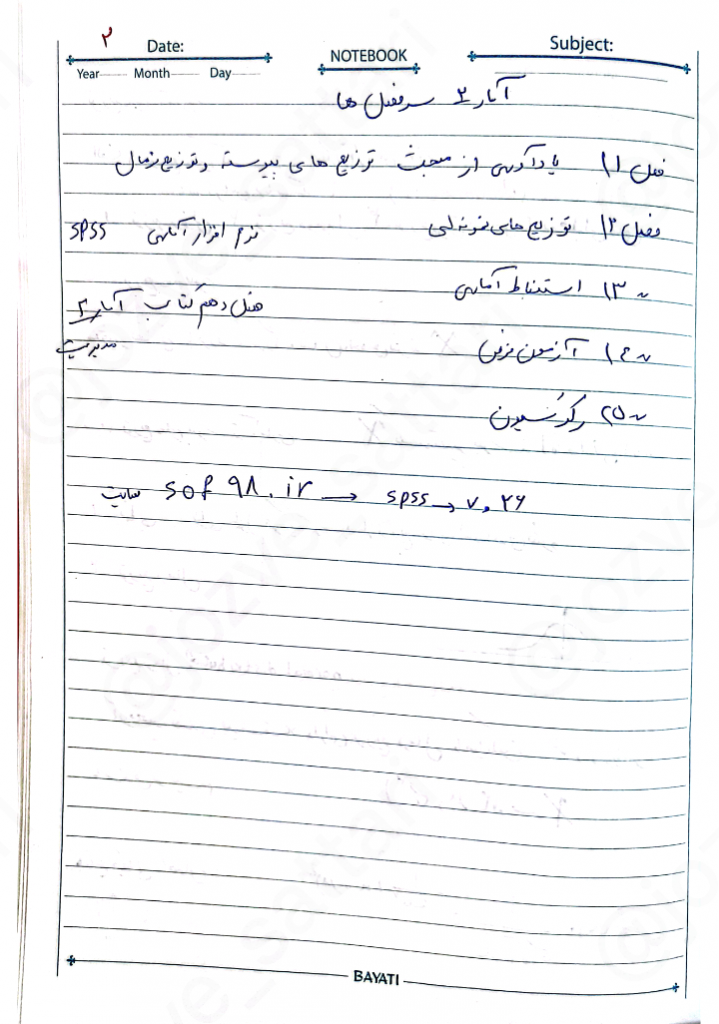 ۲
Date: NOTEBOOK Subject:
Year Month Day
آمار ۲ سرفصل ها
فصل ۱) یادآوری از مبحث توزیع های پیوسته و توزیع نرمال
فصل ۲) توزیع های نمونه ای نرم افزار آماری SPSS
~ ۳) استنباط آماری
فصل دهم کتاب آمار ۲
مدیریت
~ ۴) آزمون فرض
~ ۵) رگرسیون
سایت sof ۹۸.ir → spss → v. ۲۶
BAYATI